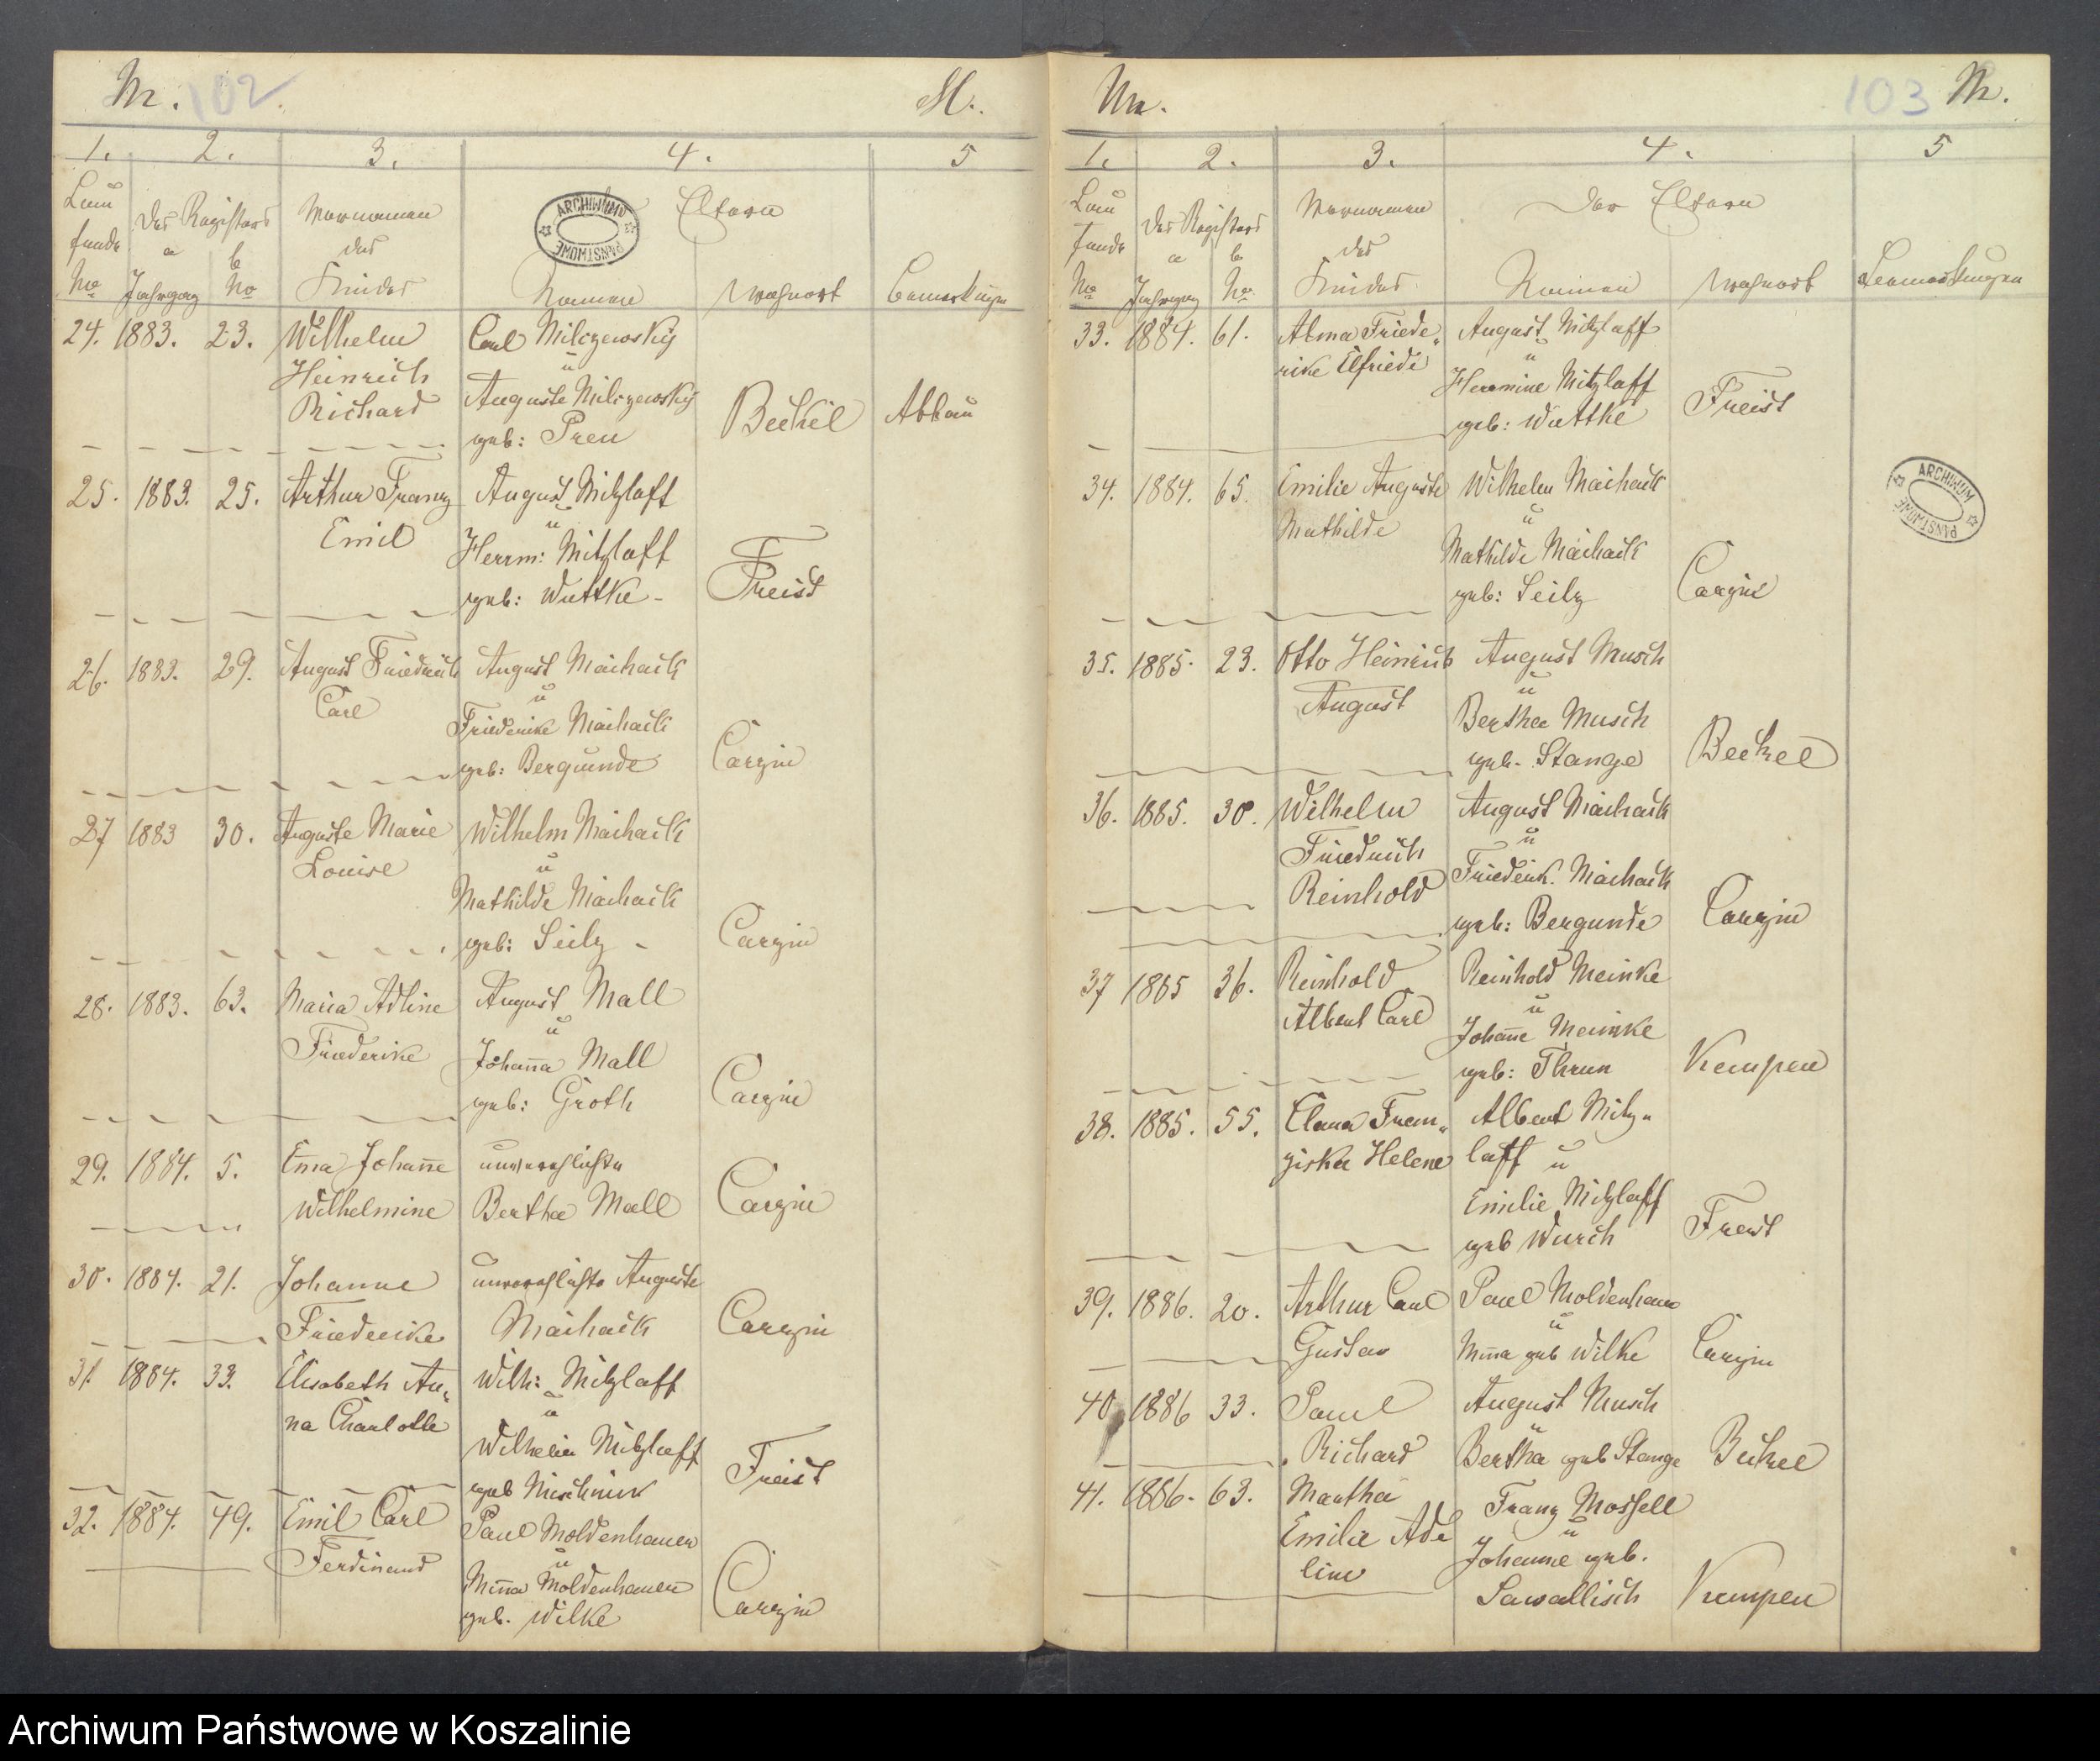 M. 102 M.
1. 2. 3. 4. 5
Lau Des Registers Vornamen Eltern
fende a b des
No Jahrgang No Kindes Namen Wohnort Bemerkungen
24. 1883. 23. Wilhelm Carl Milczewsky
Heinrich u
Richard Auguste Milczewsky Beckel Abbau
geb:
25. 1883. 25. Arthur Franz August Mitzlaff
Emil u
Herrm: Mitzlaff
geb: Wuttke - Freist
26. 1883. 29. August Friedrich August Maihack
Carl u
Friederike Maihack
geb: Bergunde Carzin
27 1883 30. Auguste Marie Wilhelm Maihack
Louise u
Mathilde Maihack
geb: Seilz - Carzin
28. 1883. 63. Maria Adline August Mall
Friederike u
Johanna Mall
geb: Groth Carzin
29. 1884. 5. Em̄a Johan̄e unverehlichte
Wilhelmine Bertha Mall Carzin
30. 1884. 21. Johanne unverehlichte Auguste
Friedericke Maihack Carzin
31. 1884. 33. Elisabeth An„ Wilh: Mitzlaff
na Charlotte u
Wilhelm Mitzlaff
geb Freist
32. 1884. 49. Emil Carl Paul Moldenhauer
Ferdinand u
Min̄a Moldenhauer
geb. Wilke Carzin
M. 103 M.
1. 2. 3. 4. 5
Lau Des Registers Vornamen Der Eltern
fende a b des
No Jahrgang No. Kindes Namen Wohnort Bemerkungen
33. 1884. 61. Alma Friede„ August Mitzlaff
rike Elfriede u
Hermine Mitzlaff
geb: Wuttke Freist
34. 1884. 65. Emilie Auguste Wilhelm Maihack
Mathilde u
Mathilde Maihack
geb: Seilz Carzin
35. 1885. 23. Otto Heinrich August Musch
August u
Bertha Musch
geb. Stange Beckel
36. 1885. 30. Wilhelm August Maihack
Friedrich u
Reinhold Friederik. Maihack
geb: Bergunde Carzin
37 1885 36. Reinhold Reinhold Meinke
Albert Carl u
Johan̄e Meinke
geb: Thrun Kempen
38. 1885. 55. Clara Fran„ Albert Mitz„
ziska Helene laff u
Emilie Mitzlaff
geb Wurch Freist
39. 1886. 20. Arthur Carl Paul Moldenhauer
Gustav u
Min̄a geb Wilke Carzin
40 1886 33. Paul August Musch
u
Richard Bertha geb Stange Beckel
41. 1886. 63. Martha Franz Mossell
Emilie Ade u
line Johanne geb.
Sawallisch Kempen
ARCHIWUM PAŃSTWOWE
ARCHIWUM PAŃSTWOWE
Archiwum Państwowe w Koszalinie